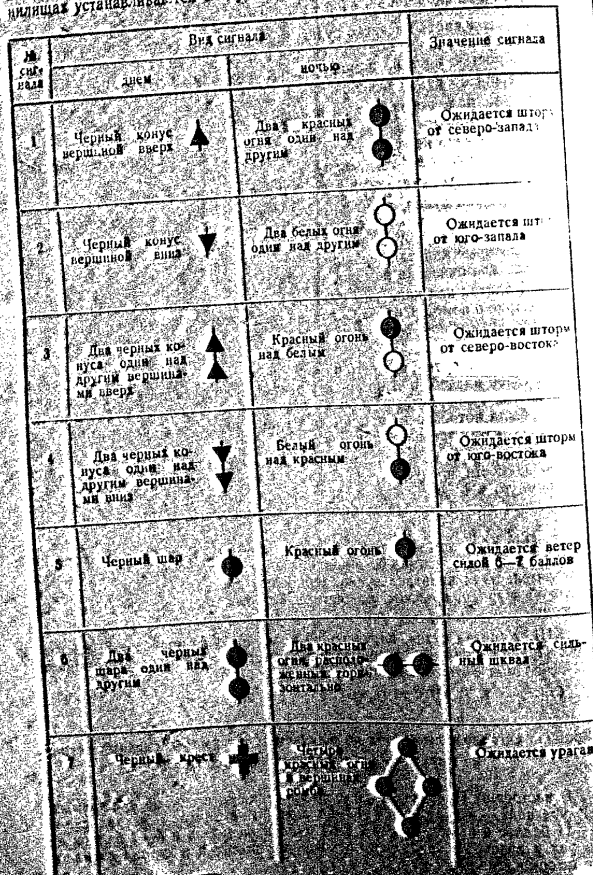 нилищах устанавливается
№ сиг-
нала
Вид сигнала
Значение сигнала
днем
ночью
1
Черный конус
вершиной вверх
Два красных
огня один над
другим
Ожидается шторм
от северо-запада
2
Черный конус
вершиной вниз
Два белых огня
один над другим
Ожидается што
от юго-запада
3
Два черных ко-
нуса один над
другим вершина-
ми вверх
Красный огонь
над белым
Ожидается шторм
от северо-востока
4
Два черных ко-
нуса один над
другим вершина-
ми вниз
Белый огонь
над красным
Ожидается шторм
от юго-востока
5
Черный шар
Красный огонь
Ожидается ветер
силой 6—7 баллов
6
Два черных
шара один над
другим
Два красных
огня, располо-
женных гори-
зонтально
Ожидается силь-
ный шквал
7
Черный крест
Четыре
красных огня
в вершинах
ромба
Ожидается ураган